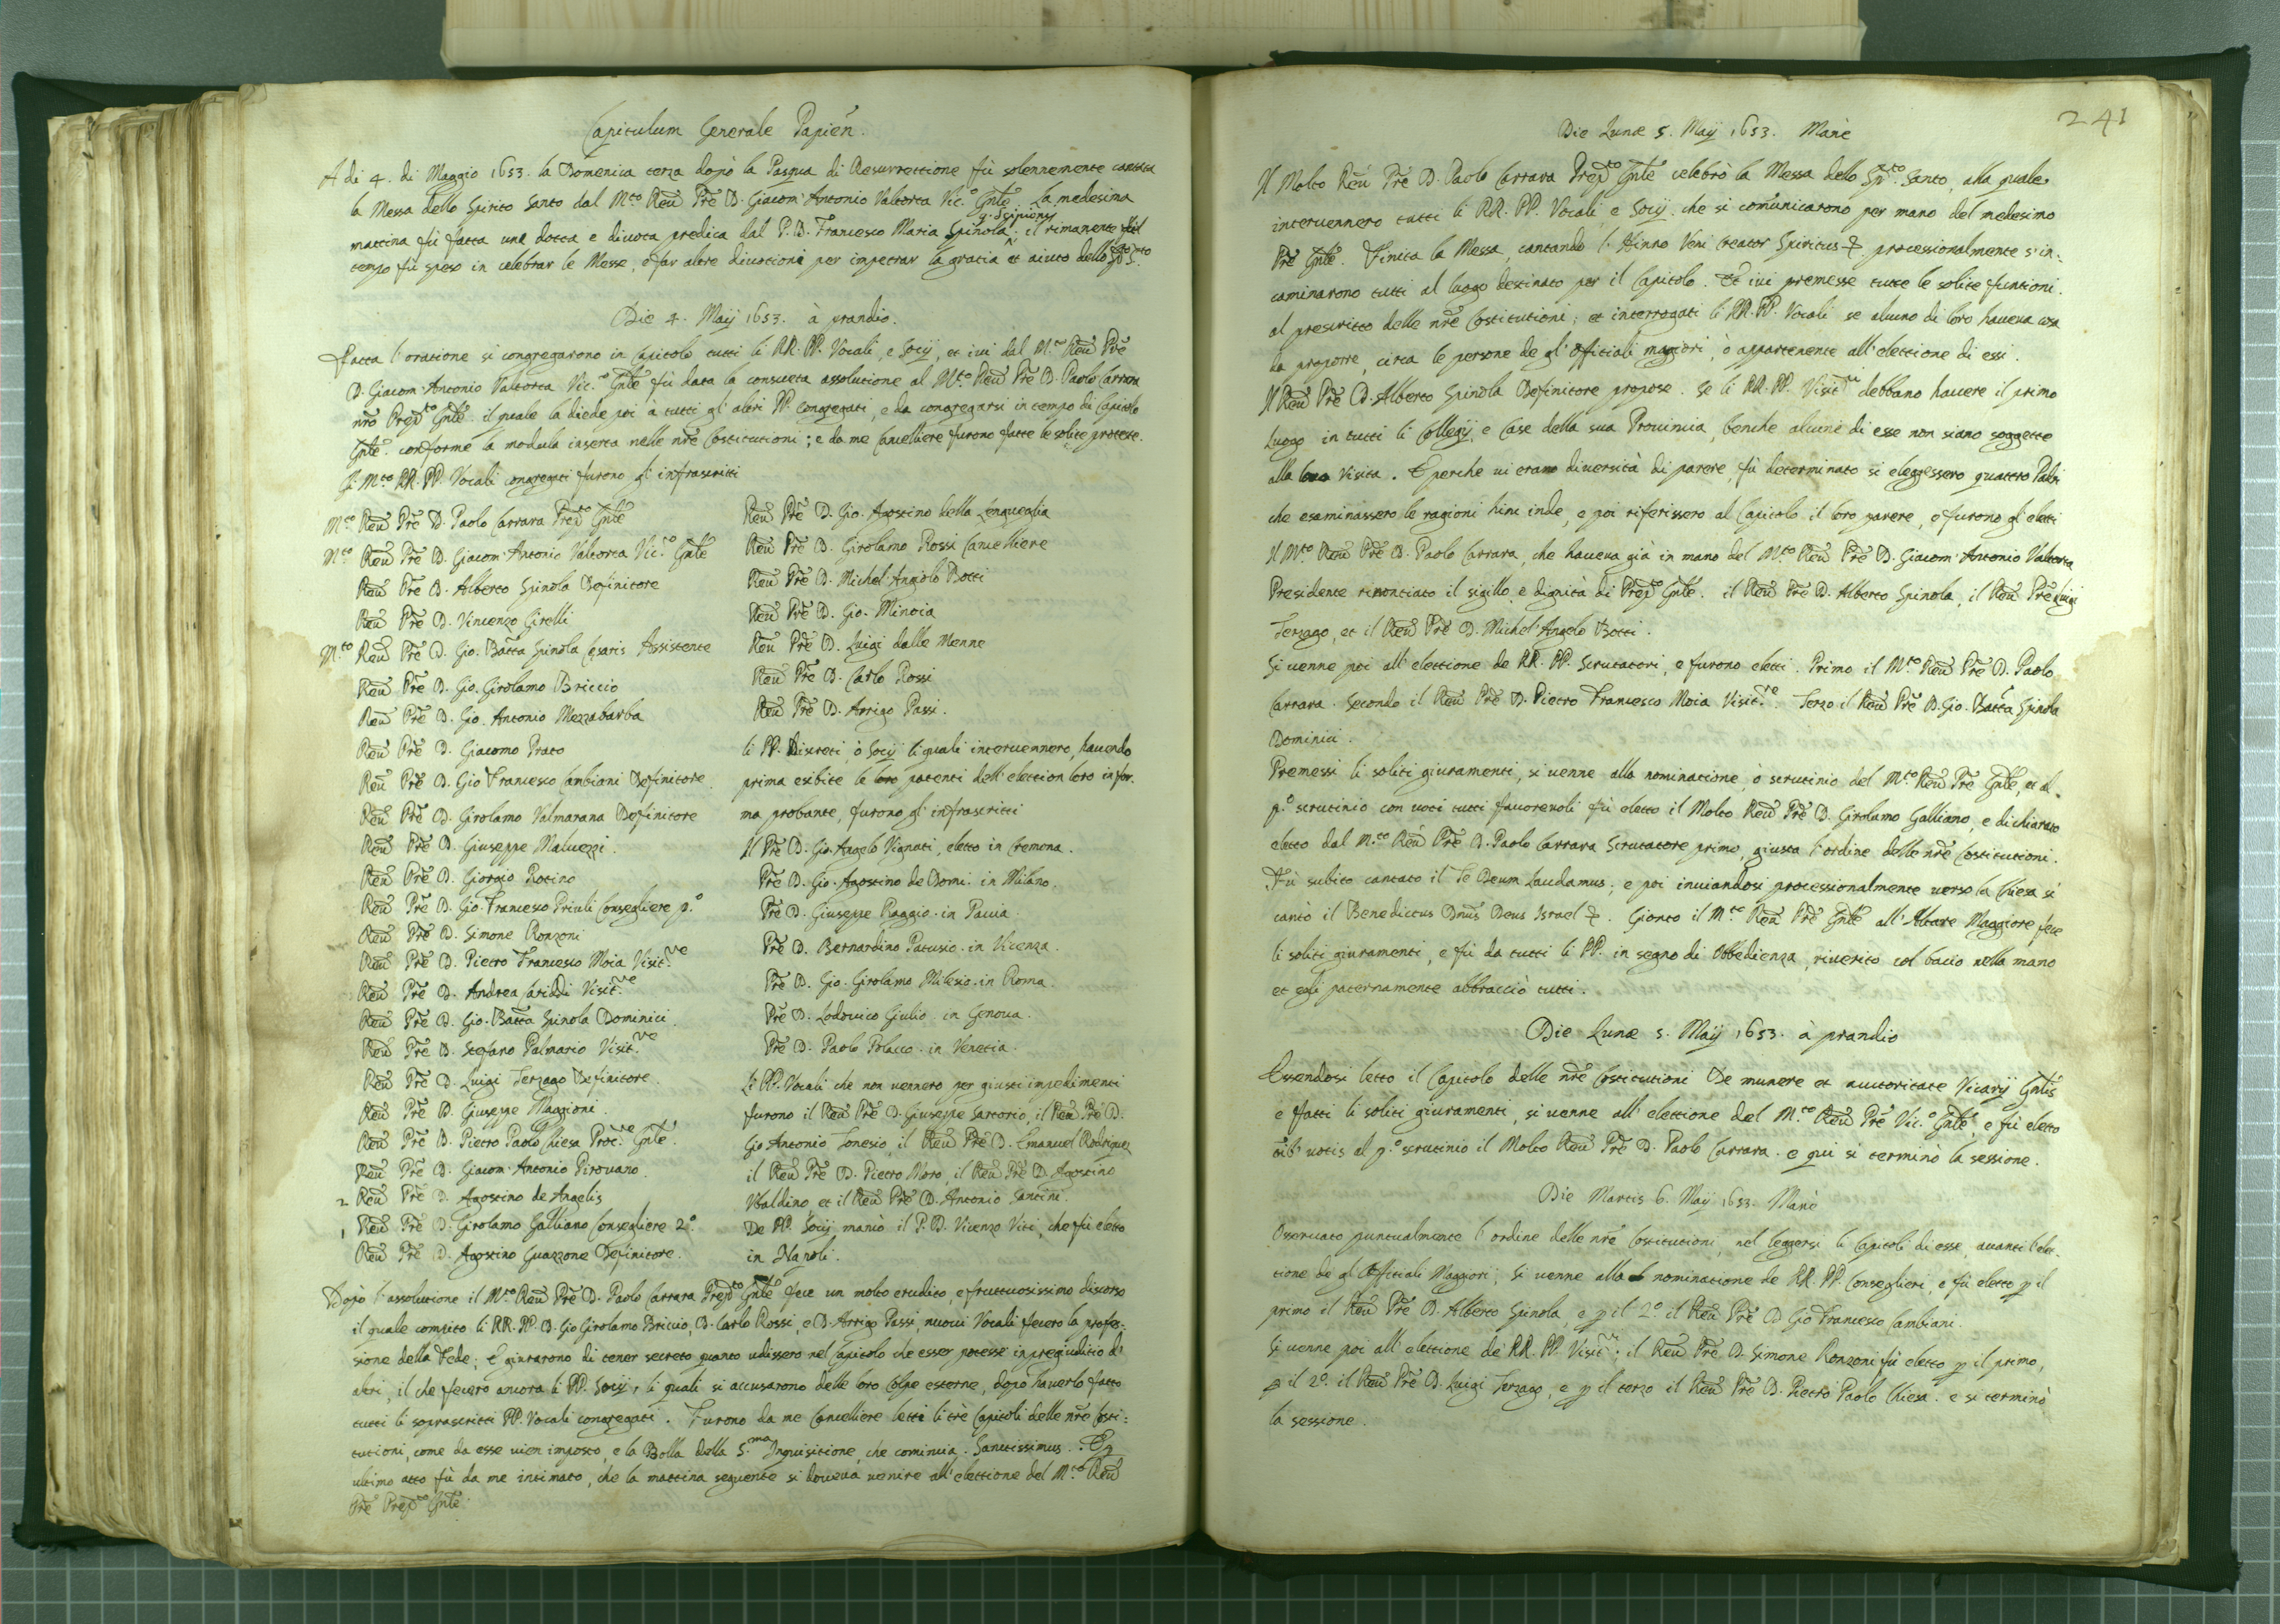 Capitulum Generale Papien̄.
A di 4. di Maggio 1653. la Domenica terza dopò la Pasqua di Resurrettione fù solennemente cantata
la Messa dello Spirito Santo dal M.to Reũ Prē D. Giacom' Antonio Valtorta Vic.o Gn̄le. La medesima
mattina fù fatta una dotta e divota predica dal P. D. Francesco Maria Spinola q. Scipionis; il rimanente del
tempo fù speso in celebrar le Messe, e far altre divotioni per impetrar la gratia et aiuto dello Sp̄to S.to
Die 4. Maij 1653. à prandio.
Fatta l'oratione si congregarono in Capitolo tutti li RR. PP. Vocali, e Socij, et ivi dal M.to Reũ Prē
D. Giacom' Antonio Valtorta Vic.o Gn̄le fù data la consueta assolutione al M.to Reũ Prē D. Paolo Carrara
nr̄o Prep.to Gn̄le. il quale la diede poi à tutti gl'altri PP. congregati, e da congregarsi in tempo di Capitolo
Gn̄le. conforme la modula inserta nelle nr̄e Costitutioni; e da me Cancelliere furono fatte le solite proteste.
Li M.to RR. PP. Vocali congregati furono gl'infrascritti
M.to Reũ Prē D. Paolo Carrara Prep.to Gn̄le
M.to Reũ Prē D. Giacom' Antonio Valtorta Vic.o Gn̄le
Reũ Prē D. Alberto Spinola Definitore
Reũ Prē D. Vincenzo Girelli
M.to Reũ Prē D. Gio. Batta Spinola Cesaris Assistente
Reũ Prē D. Gio. Girolamo Briccio
Reũ Prē D. Gio. Antonio Mezzabarba
Reũ Prē D. Giacomo Prato
Reũ Prē D. Gio Francesco Cambiani Definitore.
Reũ Prē D. Girolamo Valmarana Definitore
Reũ Prē D. Giuseppe Malvezzi.
Reũ Prē D. Giorgio Rotino
Reũ Prē D. Gio. Francesco Priuli Consegliere p.o
Reũ Prē D. Simone Ronzoni
Reũ Prē D. Pietro Francesco Moia Visit.re
Reũ Prē D. Andrea Cariddi Visit.re
Reũ Prē D. Gio. Batta Spinola Dominici.
Reũ Prē D. Stefano Palmario Visit.re
Reũ Prē D. Luigi Terzago Definitore.
Reũ Prē D. Giuseppe Maggioni.
Reũ Prē D. Pietro Paolo Chiesa Proc.re Gn̄le.
Reũ Prē D. Giacom' Antonio Pirovano.
2 Reũ Prē D. Agostino de Angelis
1 Reũ Prē D. Girolamo Galliano Consegliere 2.o
Reũ Prē D. Agostino Guazzone Definitore.
Reũ Prē D. Gio. Agostino della Lengueglia
Reũ Prē D. Girolamo Rossi Cancelliere
Reũ Prē D. Michel' Angiolo Botti
Reũ Prē D. Gio. Minoia
Reũ Prē D. Luigi dalle Menne
Reũ Prē D. Carlo Rossi
Reũ Prē D. Arrigo Passi.
li PP. Discreti, ò Socij li quali intervennero, havendo
prima esibite le loro patenti dell'elettion loro in for-
ma probante, furono gl'infrascritti
Il Prē D. Gio. Angelo Vignati, eletto in Cremona.
Prē D. Gio. Agostino de Domi. in Milano.
Prē D. Giuseppe Raggio. in Pavia.
Prē D. Bernardino Patusio. in Vicenza.
Prē D. Gio. Girolamo Milesio. in Roma.
Prē D. Lodovico Giulio. in Genova.
Prē D. Paolo Polacco. in Venetia.
Li PP. Vocali che non vennero per giusti impedimenti
furono il Reũ Prē D. Giuseppe Sartorio, il Reũ Prē D.
Gio Antonio Tonesio, il Reũ Prē D. Emanuel Rodriguez
il Reũ Prē D. Pietro Moro, il Reũ Prē D. Agostino
Ubaldino, et il Reũ Prē D. Antonio Santini.
De PP. Socij mancò il P. D. Vicenzo Viti, che fù eletto
in Napoli.
Dopò l'assolutione il M.to Reũ Prē D. Paolo Carrara Prep.to Gn̄le fece un molto erudito, e fruttuosissimo discorso
il quale compito li RR. PP. D. Gio Girolamo Briccio, D. Carlo Rossi, e D. Arrigo Passi, nuovi Vocali fecero la profes-
sione della Fede; e giurarono di tener secreto quanto udissero nel Capitolo che esser potesse in pregiuditio d'
altri, il che fecero ancora li PP. Socij, li quali si accusarono delle loro Colpe esterne, dopò haverlo fatto
tutti li soprascritti PP. Vocali congregati. Furono da me Cancelliere letti li trè Capitoli delle nr̄e Costi-
tutioni, come da esse vien imposto, e la Bolla della S.ma Inquisitione, che comincia. Sanctissimus. E p
ultimo atto fù da me intimato, che la mattina seguente si doveva venire all'elettione del M.to Reũ
Prē Prep.to Gn̄le.
241
Die Lunæ 5. Maij 1653. Manè
Il Molto Reũ Prē D. Paolo Carrara Prep.to Gn̄le celebrò la Messa dello Sp̄.to Santo, alla quale
intervennero tutti li RR. PP. Vocali, e Socij. che si com̄unicarono per mano del medesimo
Prē Gn̄le. Finita la Messa, cantando l'Hinno Veni Creator Spiritus &. processionalmente s'in-
caminarono tutti al luogo destinato per il Capitolo. Et ivi premesse tutte le solite funtioni.
al prescritto delle nr̄e Costitutioni; et interrogati li RR. PP. Vocali se alcuno di loro haveva cosa
da proporre, circa le persone de gl'Offitiali maggiori, ò appartenente all'elettione di essi.
Il Reũ Prē D. Alberto Spinola Definitore propose. Se li RR. PP. Visit.ri debbano havere il primo
luogo in tutti li Collegij, e Case della sua Provincia, benche alcuni di esse non siano soggette
alla loro Visita. E perche vi erano diversità di parere, fù determinato si eleggessero quattro Padri
che esaminassero le ragioni hinc inde, e poi riferissero al Capitolo il loro parere, e furono gl'eletti
Il M.to Reũ Prē D. Paolo Carrara, che haveva già in mano del M.to Reũ Prē D. Giacom' Antonio Valtorta
Presidente rinontiato il sigillo, e dignità di Prep.to Gn̄le. il Reũ Prē D. Alberto Spinola, il Reũ Prē Luigi
Terzago, et il Reũ Prē D. Michel' Angelo Botti.
Si venne poi all'elettione de RR. PP. Scrutatori, e furono eletti. Primo il M.to Reũ Prē D. Paolo
Carrara. Secondo il Reũ Prē D. Pietro Francesco Moia Visit.re. Terzo il Reũ Prē D. Gio. Batta Spinola
Dominici.
Premessi li soliti giuramenti, si venne alla nominatione, ò scrutinio del M.to Reũ Prē Gn̄le, et al
p.o scrutinio con voti tutti favorevoli fù eletto il Molto Reũ Prē D. Girolamo Galliano, e dichiarato
eletto dal M.to Reũ Prē D. Paolo Carrara Scrutatore primo, giusta l'ordine delle nr̄e Costitutioni.
Fù subito cantato il Te Deum Laudamus; e poi inviandosi processionalmente verso la Chiesa si
cantò il Benedictus Dn̄us Deus Israel &. Gionto il M.to Reũ Prē Gn̄le all'Altare Maggiore fece
li soliti giuramenti, e fù da tutti li PP. in segno di Obbedienza, riverito col bacio nella mano
et egli paternamente abbracciò tutti.
Die Lunæ 5. Maij 1653. à prandio
Essendosi letto il Capitolo delle nr̄e Costitutioni De munere et auctoritate Vicarij Gn̄lis
e fatti li soliti giuramenti, si venne all'elettione del M.to Reũ Prē Vic.o Gn̄le, e fù eletto
oīb' votis al p.o scrutinio il Molto Reũ Prē D. Paolo Carrara. e qui si terminò la sessione.
Die Martis 6. Maij 1653. Manè
Osservato puntualmente l'ordine delle nr̄e Costitutioni, nel leggersi li Capitoli di esse, avanti l'elet-
tione de gl'Offitiali Maggiori, Si venne alla nominatione de RR. PP. Conseglieri, e fù eletto p il
primo il Reũ Prē D. Alberto Spinola, e p il 2.o il Reũ Prē D. Gio Francesco Cambiani.
Si venne poi all'elettione de' RR. PP. Visit.ri; il Reũ Prē D. Simone Ronzoni fù eletto p il primo,
p il 2.o il Reũ Prē D. Luigi Terzago, e p il terzo il Reũ Prē D. Pietro Paolo Chiesa. e si terminò
la sessione.